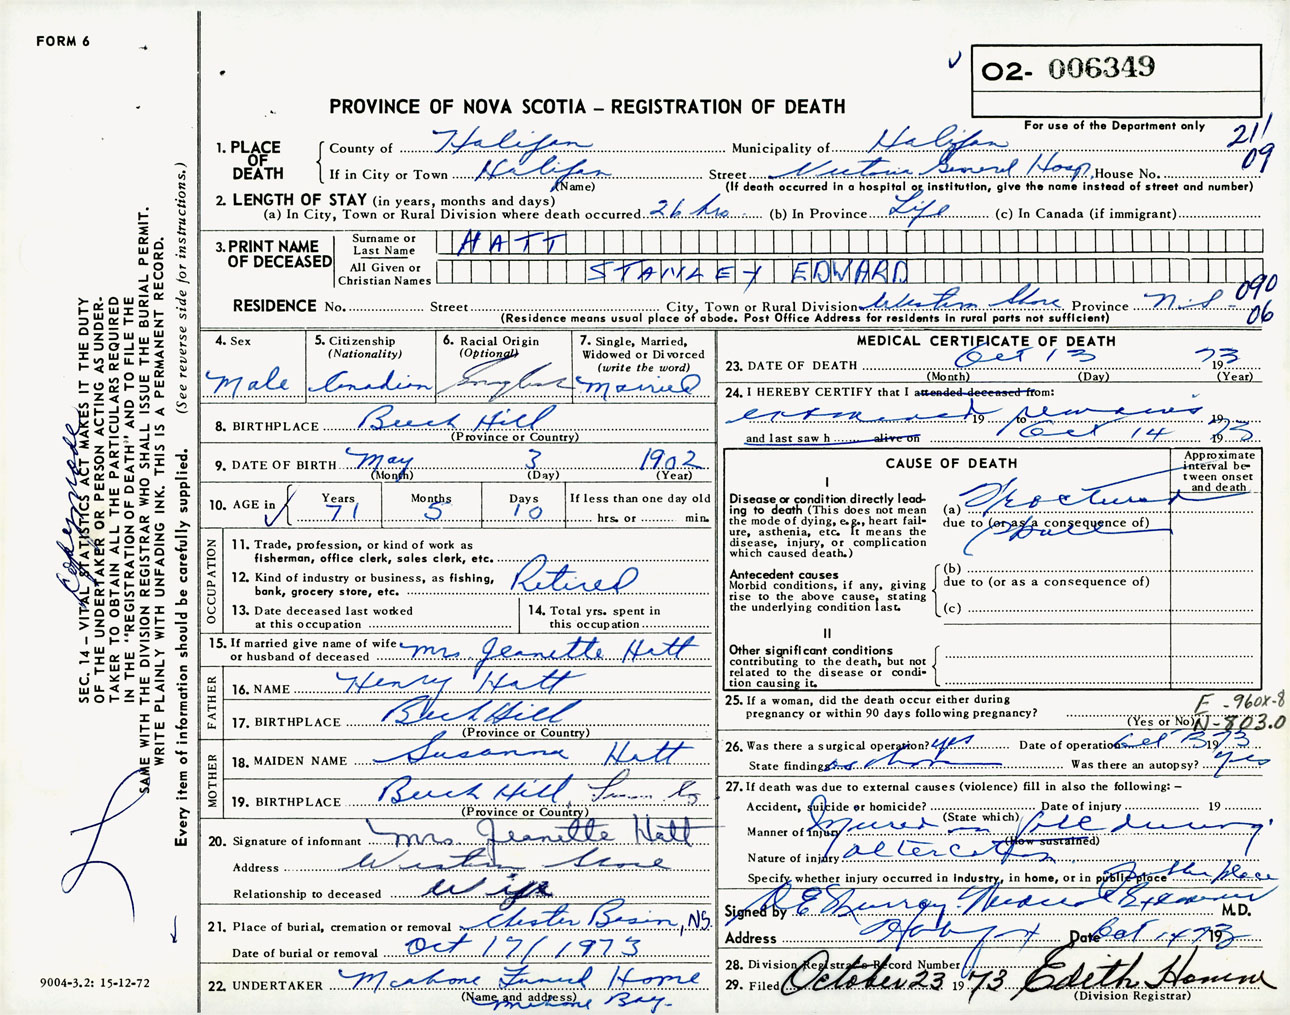 FORM 6
O2- 006349
PROVINCE OF NOVA SCOTIA – REGISTRATION OF DEATH
For use of the Department only
211
09
1. PLACE OF DEATH
County of Halifax Municipality of Halifax
If in City or Town Halifax Street Victoria General Hosp. House No.
(Name) (If death occurred in a hospital or institution, give the name instead of street and number)
2. LENGTH OF STAY (in years, months and days)
(a) In City, Town or Rural Division where death occurred 26 hrs (b) In Province Life (c) In Canada (if immigrant)
3. PRINT NAME OF DECEASED
Surname or Last Name HATT
All Given or Christian Names STANLEY EDWARD
090
06
RESIDENCE No. Street City, Town or Rural Division Western Shore Province N.S.
(Residence means usual place of abode. Post Office Address for residents in rural parts not sufficient)
4. Sex Male
5. Citizenship (Nationality) Canadian
6. Racial Origin (Optional) English
7. Single, Married, Widowed or Divorced (write the word) Married
8. BIRTHPLACE Beech Hill
(Province or Country)
9. DATE OF BIRTH May 3 1902
(Month) (Day) (Year)
10. AGE in Years Months Days If less than one day old
71 5 10 hrs. or min.
OCCUPATION
11. Trade, profession, or kind of work as fisherman, office clerk, sales clerk, etc.
12. Kind of industry or business, as fishing, bank, grocery store, etc. Retired
13. Date deceased last worked at this occupation
14. Total yrs. spent in this occupation
15. If married give name of wife or husband of deceased Mrs. Jeanette Hatt
FATHER
16. NAME Henry Hatt
17. BIRTHPLACE Beech Hill
(Province or Country)
MOTHER
18. MAIDEN NAME Susanna Hatt
19. BIRTHPLACE Beech Hill, Lun. Co.
(Province or Country)
20. Signature of informant Mrs. Jeanette Hatt
Address Western Shore
Relationship to deceased Wife
21. Place of burial, cremation or removal Chester Basin, NS.
Date of burial or removal Oct 17/1973
22. UNDERTAKER Mahone Funeral Home
(Name and address) Mahone Bay.
MEDICAL CERTIFICATE OF DEATH
23. DATE OF DEATH Oct 13 1973
(Month) (Day) (Year)
24. I HEREBY CERTIFY that I attended deceased from:
examined 19 to remains 19
and last saw h alive on Oct 14 1973
CAUSE OF DEATH
Approximate interval between onset and death
I
Disease or condition directly leading to death (This does not mean the mode of dying, e.g., heart failure, asthenia, etc. It means the disease, injury, or complication which caused death.)
(a) Fractured
due to (or as a consequence of)
Skull
Antecedent causes
Morbid conditions, if any, giving rise to the above cause, stating the underlying condition last.
(b)
due to (or as a consequence of)
(c)
II
Other significant conditions contributing to the death, but not related to the disease or condition causing it.
25. If a woman, did the death occur either during pregnancy or within 90 days following pregnancy?
(Yes or No)
E -960X-8
N-803.0
26. Was there a surgical operation? yes Date of operation Oct 13 1973
State findings as above Was there an autopsy? Yes
27. If death was due to external causes (violence) fill in also the following: –
Accident, suicide or homicide? Date of injury 19
(State which)
Manner of injury Injured in fall during
(How sustained)
Nature of injury altercation
Specify whether injury occurred in Industry, in home, or in public place Public place
Signed by D E Murray. Medical Examiner M.D.
Address Halifax Date Oct 14 1973
28. Division Registrar's Record Number
29. Filed October 23 1973 Edith
(Division Registrar)
SEC. 14 – VITAL STATISTICS ACT MAKES IT THE DUTY
OF THE UNDERTAKER OR PERSON ACTING AS UNDERTAKER
TO OBTAIN ALL THE PARTICULARS REQUIRED
IN THE "REGISTRATION OF DEATH" AND TO FILE THE
SAME WITH THE DIVISION REGISTRAR WHO SHALL ISSUE THE BURIAL PERMIT.
WRITE PLAINLY WITH UNFADING INK. THIS IS A PERMANENT RECORD.
Every item of information should be carefully supplied. (See reverse side for instructions.)
9004-3.2: 15-12-72